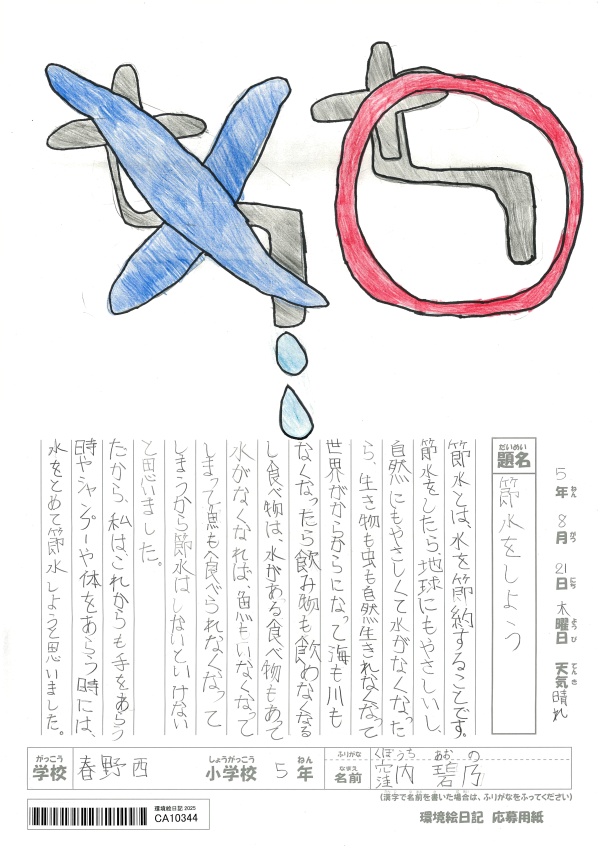 5年 8月 21日 木曜日 天気 晴れ
ねん がつ にち ようび てんき
だいめい
題名
節水をしよう
節水とは、水を節約することです。
節水をしたら、地球にもやさしいし、
自然にもやさしくて水がなくなった
ら、生き物も虫も自然生きれなくなって
世界がからからになって海も川も
なくなったら飲み物も飲めなくなる
し食べ物は、水がある食べ物もあって
水がなくなれば、魚もいなくなって
しまって魚も食べられなくなって
しまうから節水はしないといけない
と思いました。
だから、私は、これからも手をあらう
時やシャンプーや体をあらう時には、
水をとめて節水しようと思いました。
がっこう
学校
春野西
しょうがっこう
小学校
5
ねん
年
ふりがな
くぼうち あおの
なまえ
名前
窪内 碧乃
(漢字で名前を書いた場合は、ふりがなをふってください)
環境絵日記 2025
CA10344
環境絵日記 応募用紙